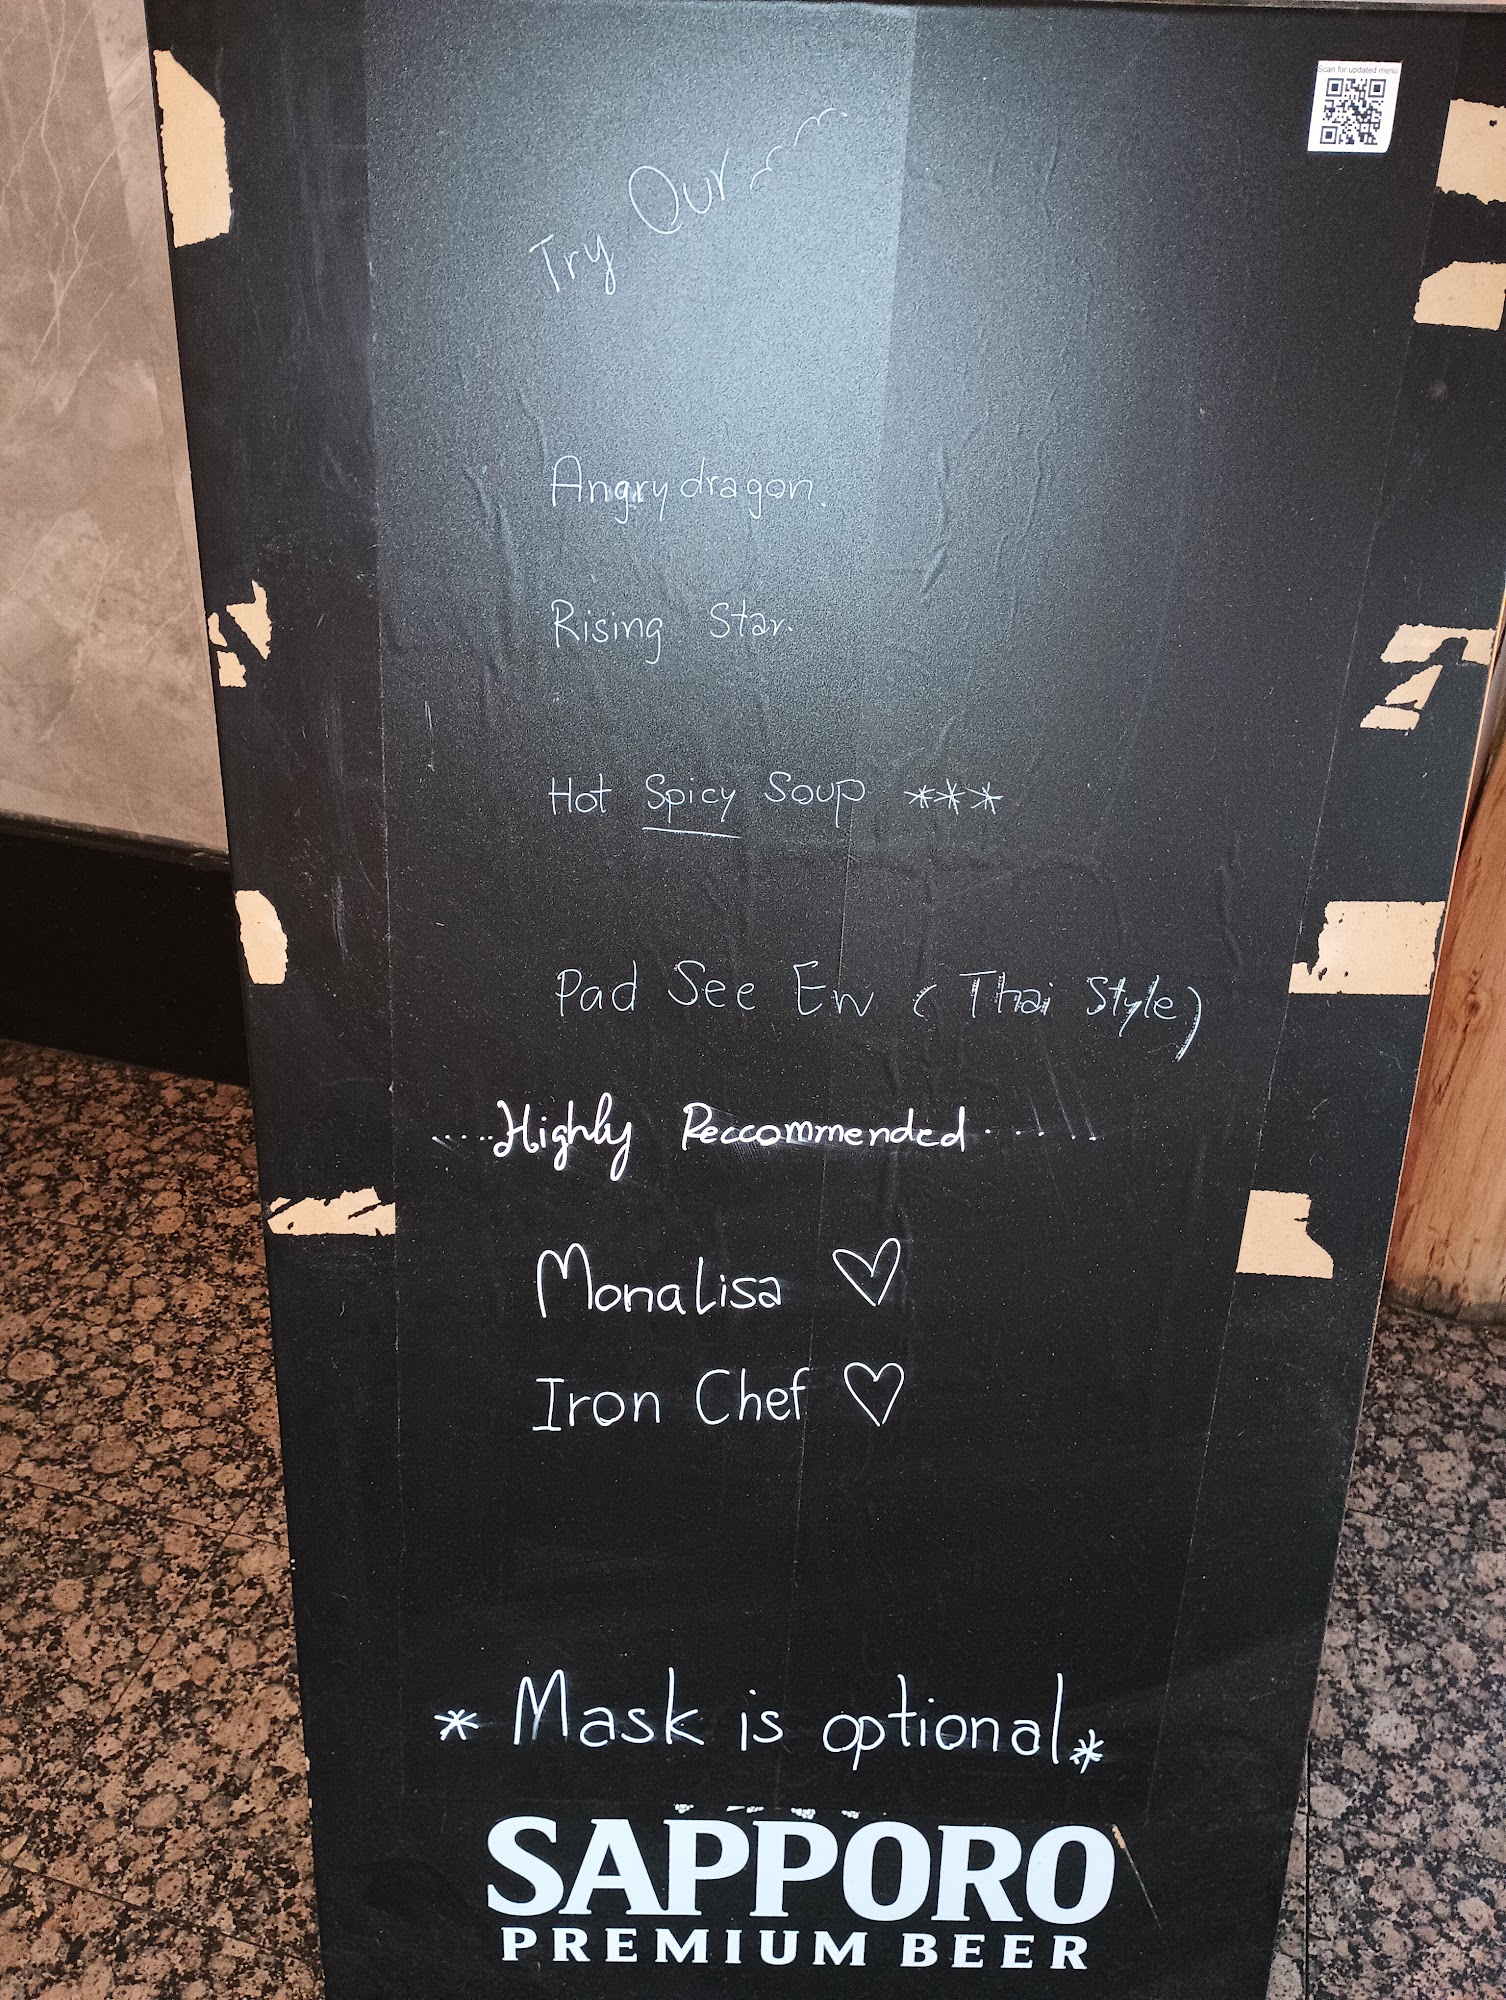 Scan for updated menu
Try Our
Angry dragon.
Rising Star.
Hot Spicy Soup ***
Pad See Ew (Thai Style)
....Highly Reccommended......
Monalisa ♡
Iron Chef ♡
* Mask is optional *
SAPPORO
PREMIUM BEER